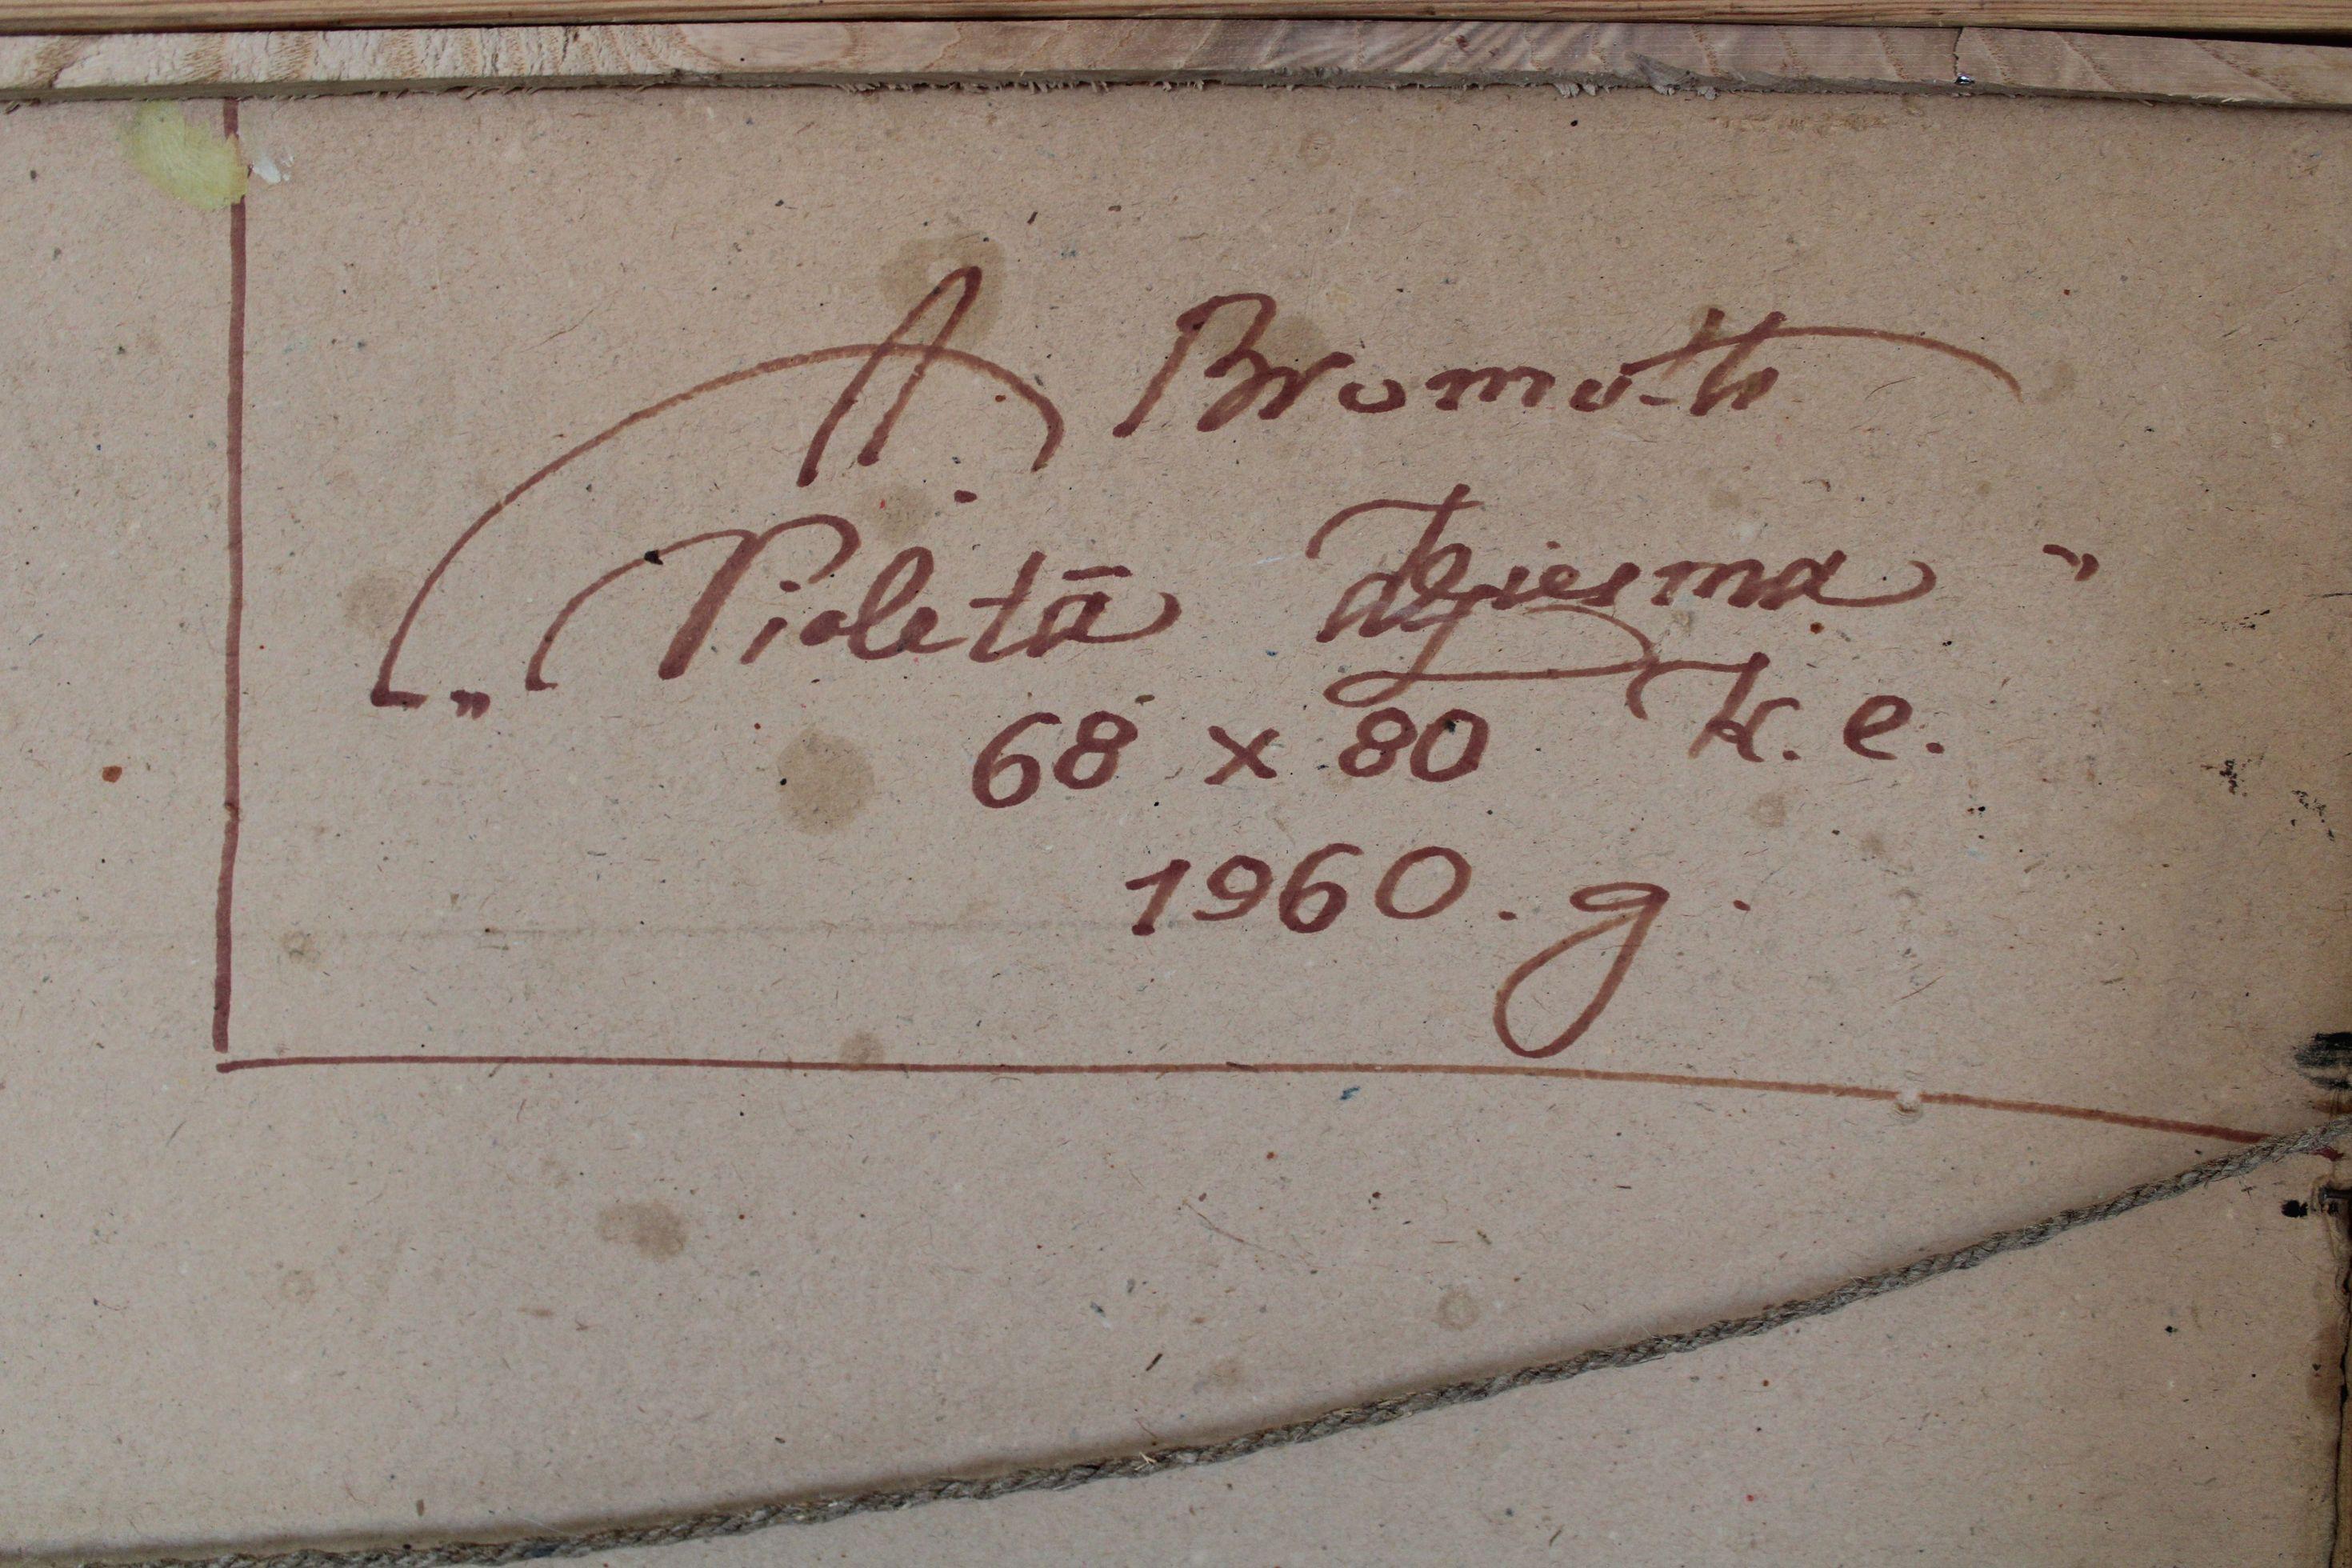 A. Bromults
„Violetā dziesma"
68 x 80 K. e.
1960. g.